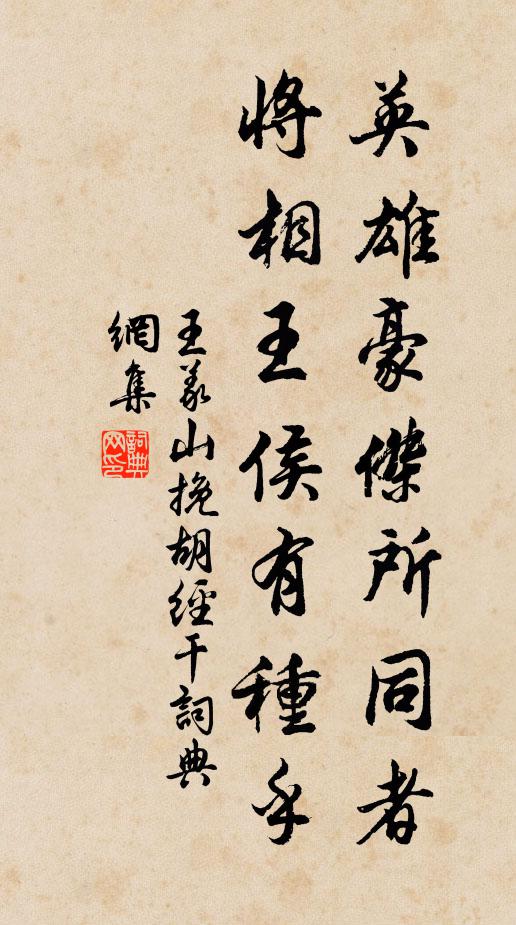 英雄豪傑所同者
將相王侯有種乎
王義山挽胡經干詞典
網集
詞典网印